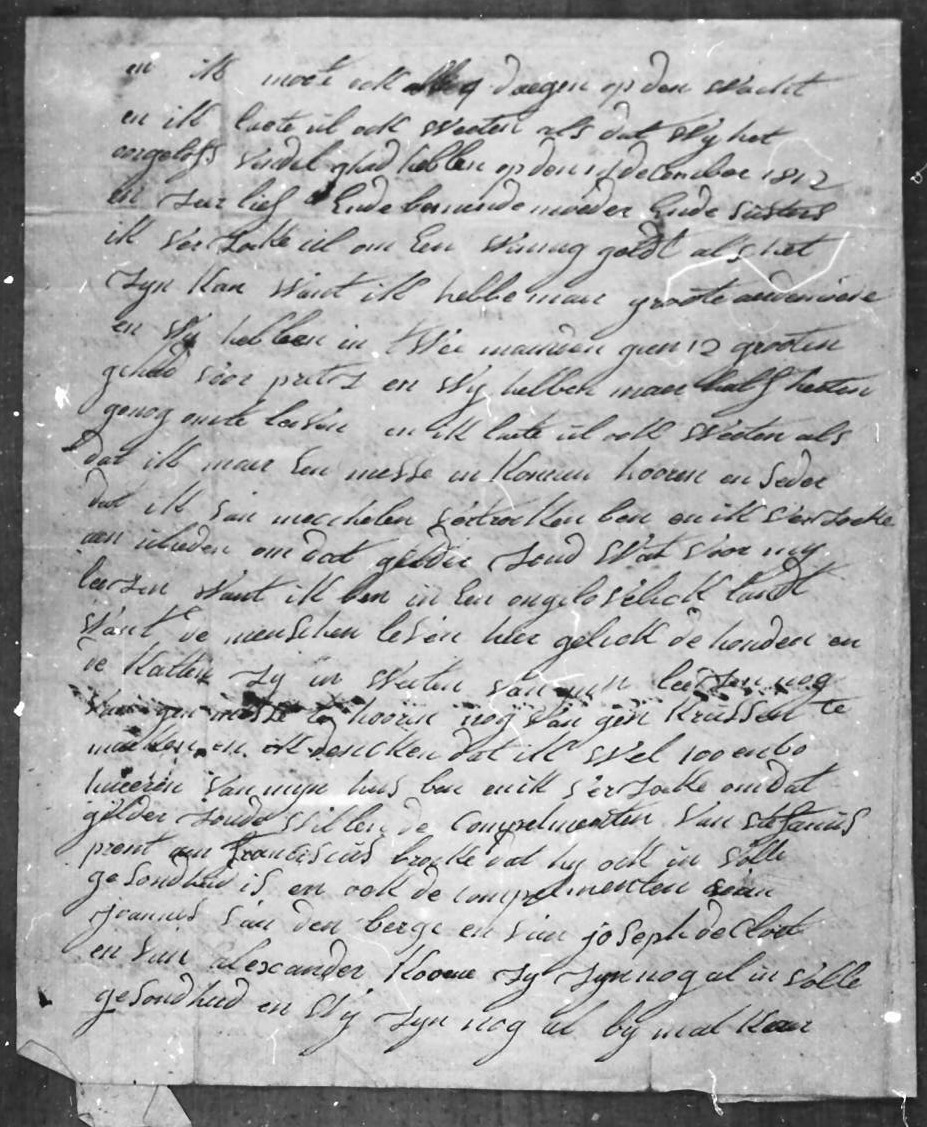 en ik moete ook alle daegen op den wacht
en ik laete ul ook weeten als dat wy het
vendel ghad hebben op den 12 december 1812
en seer lief Ende beminde moeder Ende susters
ik versoeke ul om Een winnig geldt als het
syn kan want ik hebbe maer groote
en wy hebben in twee maenden geen 12 grooten
gehad voor pret en wy hebben maer half heeten
genog om te leeven en ik laete ul ook weeten als
dat ik maer Een messe in konnen hooren en seder
dat ik van mechelen vertrocken ben en ik versoeke
aen ulieden om dat gelder soud wat voor my
leesen want ik ben in Een ongelovelick landt
want de menschen leven hier gelick de honden en
de katten sy in weeten van geen leesen nog
van gen messe te hooren nog van gen krussen te
maeken en ik dencken dat ik wel 100 en 60
hueren van myn hus ben en ik versoeke om dat
gelder soude willen de complementen van stefanus
prent aen franciscus broeke dat hy ook in volle
gesondheid is en ook de complementen van
Joannes van den berge en van joseph de cloet
en van alexander koone sy syn nog al in volle
gesondheid en wy syn nog al by malkaer